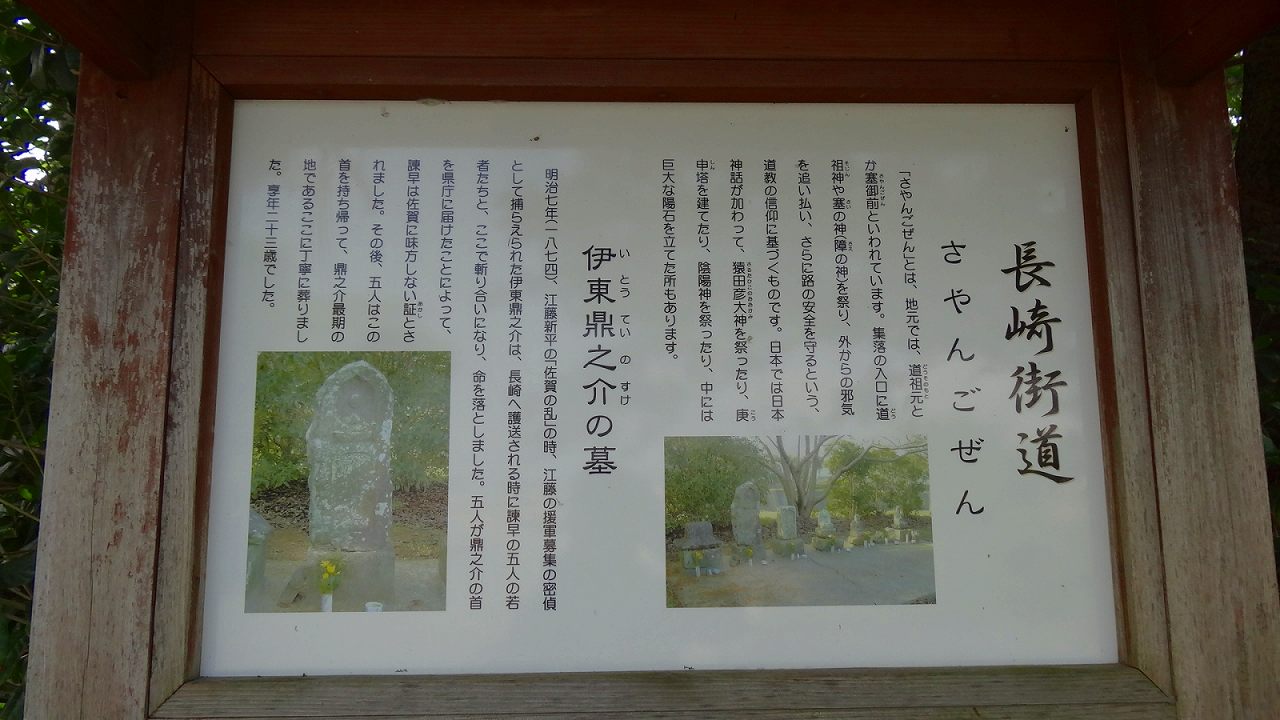 長崎街道
さやんごぜん
「さやんごぜん」とは、地元では、道祖元と
か塞御前といわれています。集落の入口に道
祖神や塞の神(障の神)を祭り、外からの邪気
を追い払い、さらに路の安全を守るという、
道教の信仰に基づくものです。日本では日本
神話が加わって、猿田彦大神を祭ったり、庚
申塔を建てたり、陰陽神を祭ったり、中には
巨大な陽石を立てた所もあります。
伊東鼎之介の墓
明治七年(一八七四)、江藤新平の「佐賀の乱」の時、江藤の援軍募集の密偵
として捕らえられた伊東鼎之介は、長崎へ護送される時に諫早の五人の若
者たちと、ここで斬り合いになり、命を落としました。五人が鼎之介の首
を県庁に届けたことによって、
諫早は佐賀に味方しない証とさ
れました。その後、五人はこの
首を持ち帰って、鼎之介最期の
地であるここに丁寧に葬りまし
た。享年二十三歳でした。